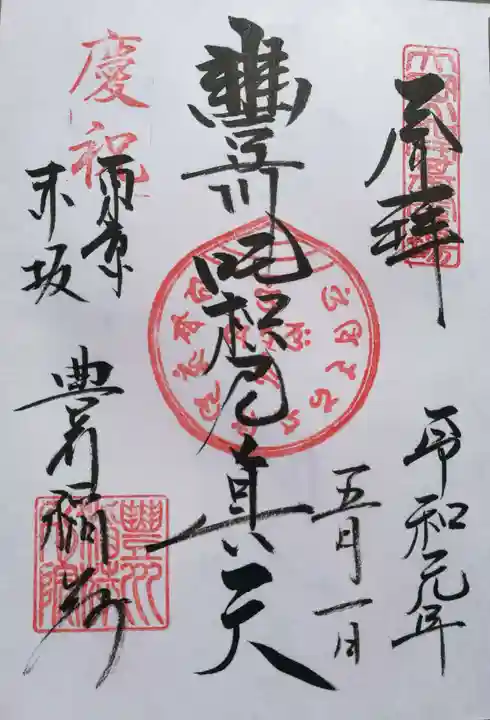 奉拜
令和元年
五月一日
豐川
吒枳尼真天
慶祝
東京
赤坂
豊川稲荷